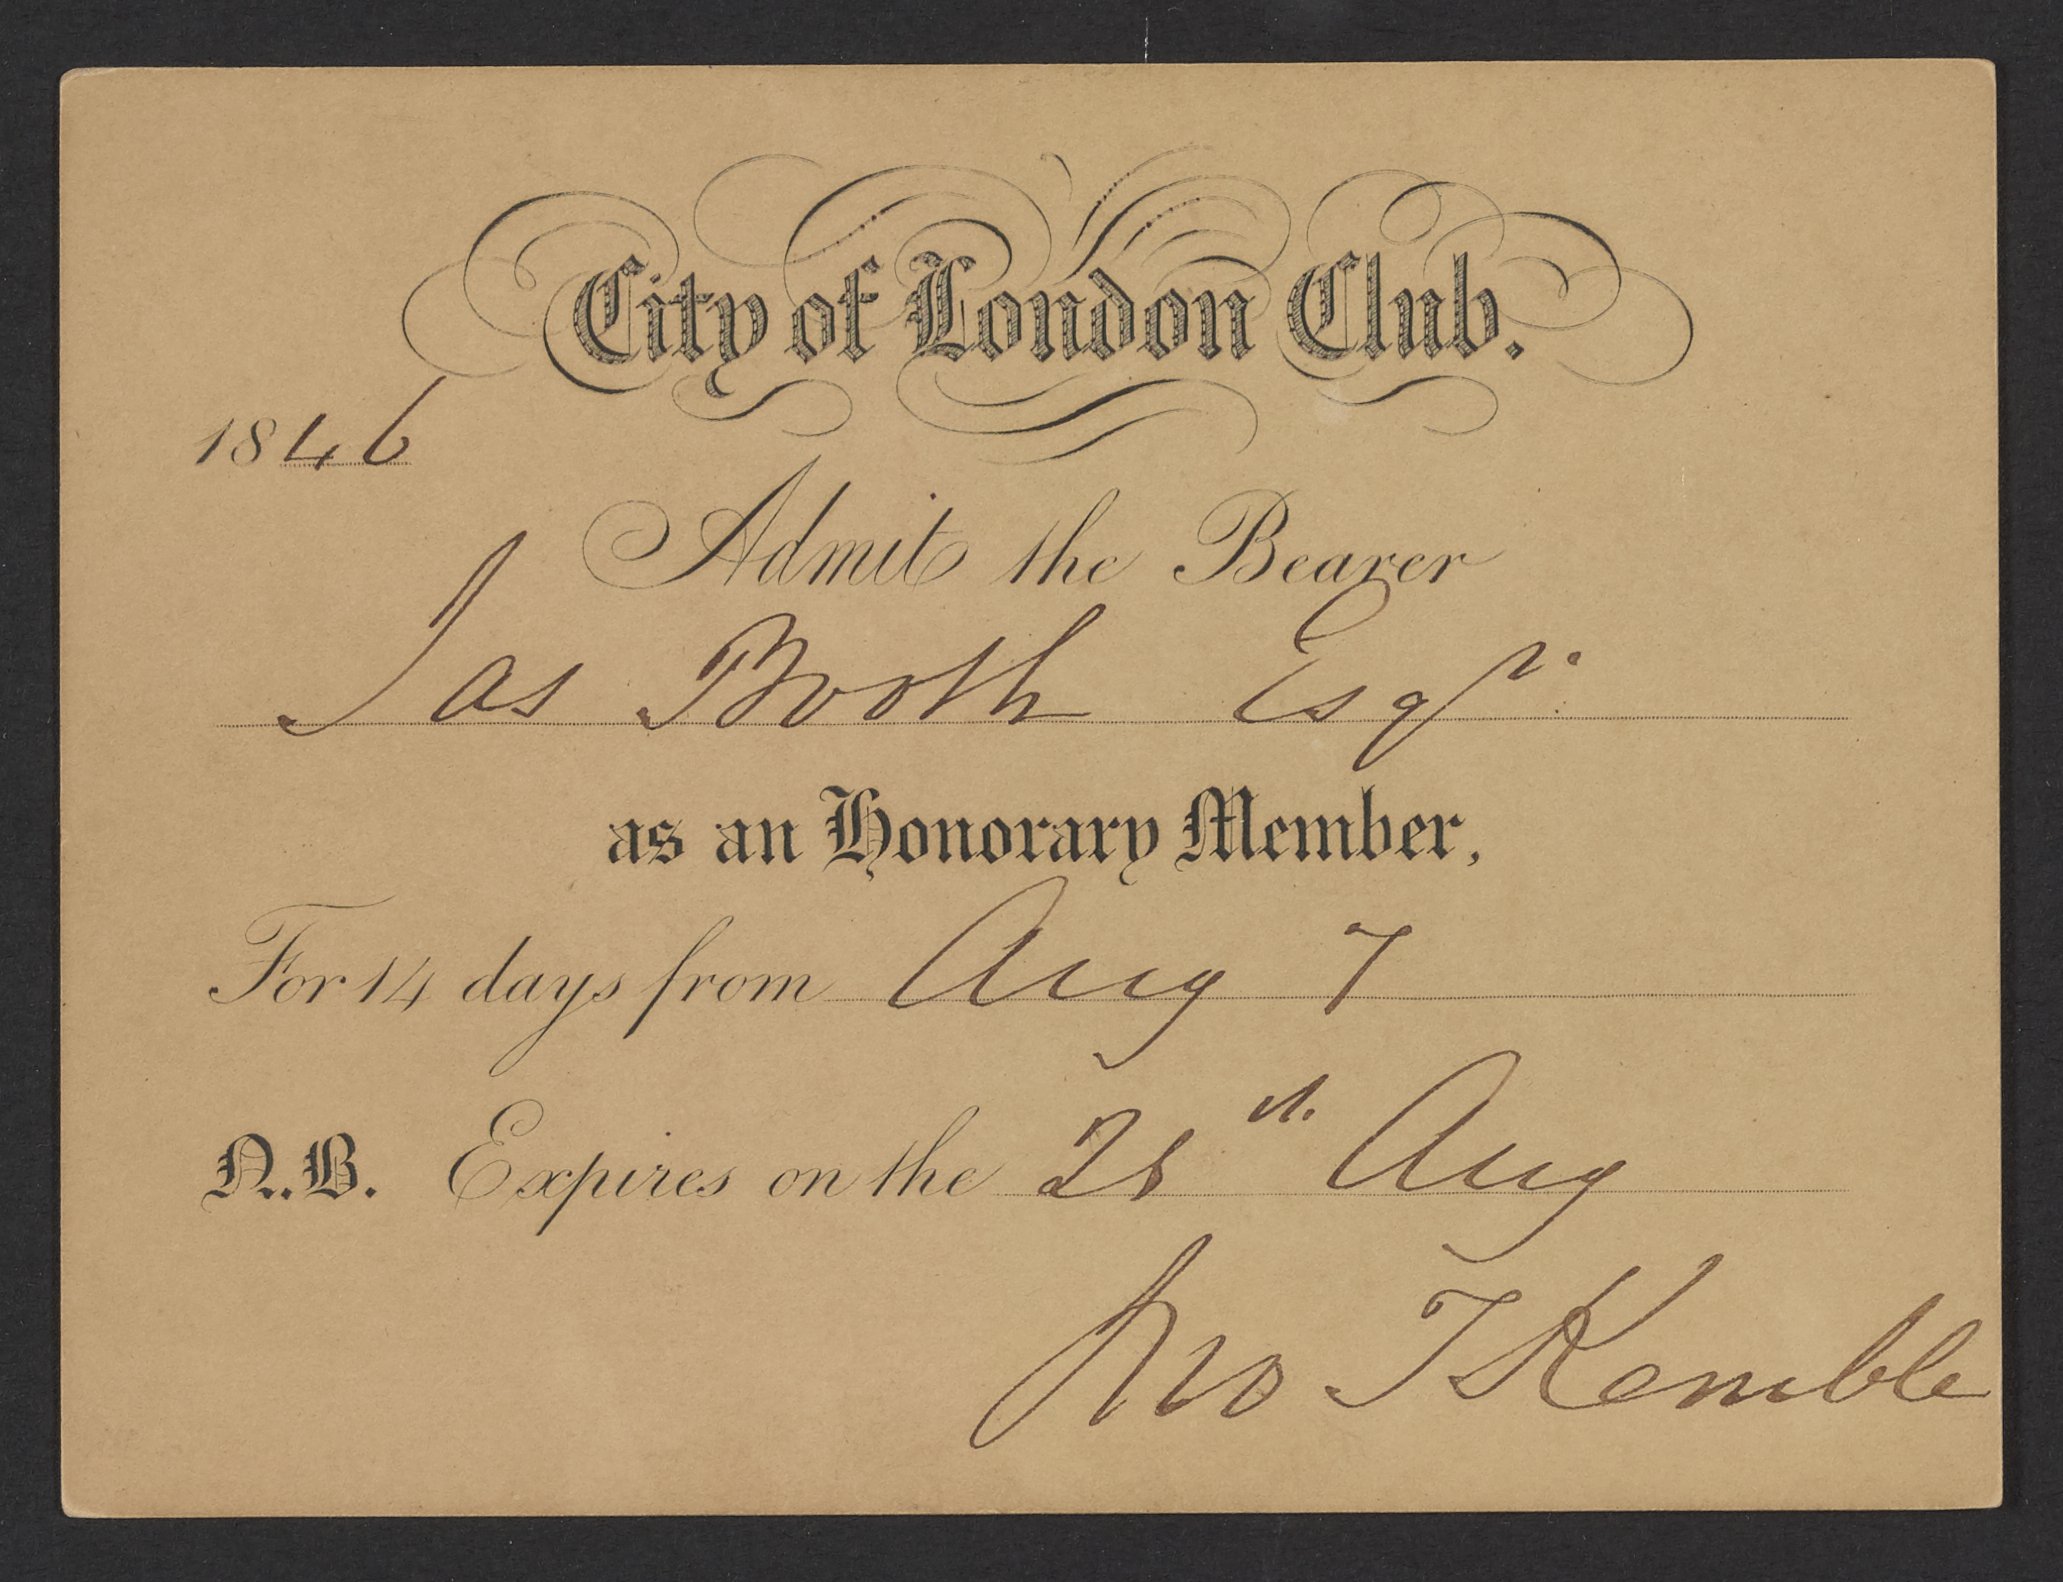 City of London Club.
1846
Admit the Bearer
Jas Booth Esqr.
as an Honorary Member,
For 14 days from Aug 7
N.B. Expires on the 21st. Aug
Jno T Kemble